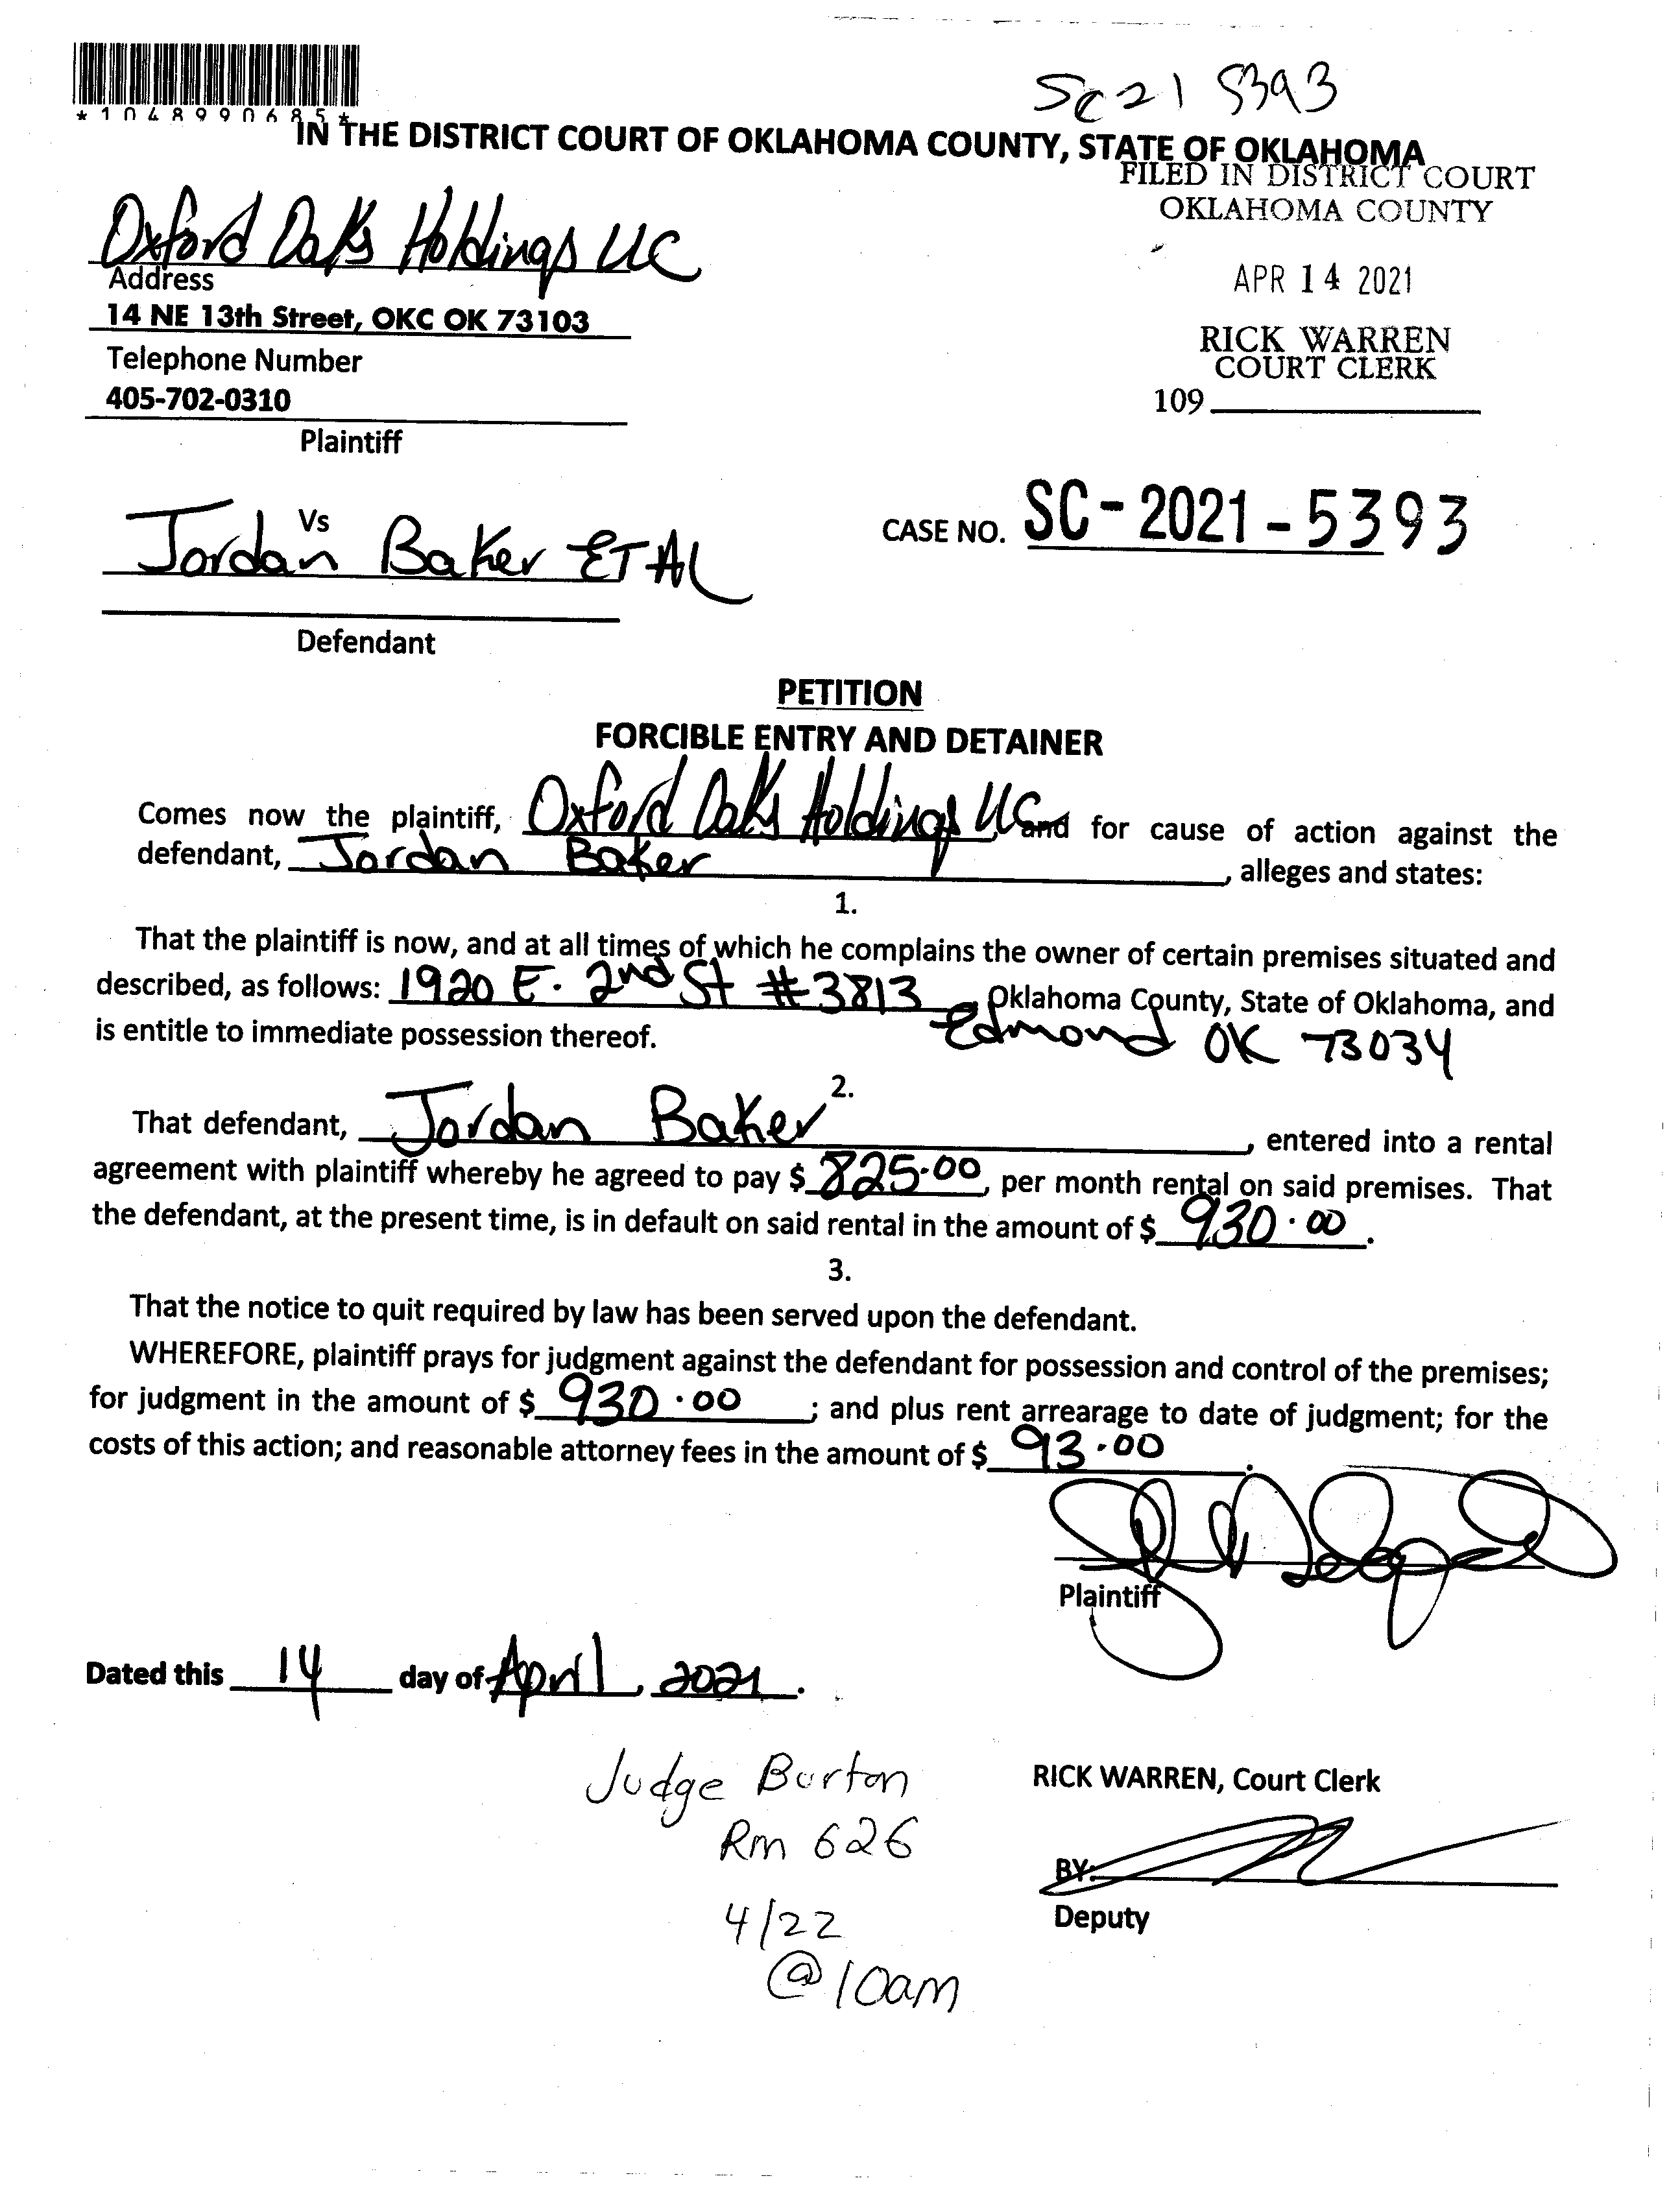 SC21 5393
*1048990685*
IN THE DISTRICT COURT OF OKLAHOMA COUNTY, STATE OF OKLAHOMA
FILED IN DISTRICT COURT
OKLAHOMA COUNTY
Oxford Oaks Holdings LLC
Address
APR 14 2021
14 NE 13th Street, OKC OK 73103
RICK WARREN
COURT CLERK
Telephone Number
405-702-0310
109
Plaintiff
Vs
CASE NO. SC-2021-5393
Jordan Baker ET AL
Defendant
PETITION
FORCIBLE ENTRY AND DETAINER
Comes now the plaintiff, Oxford Oaks Holdings LLC and for cause of action against the
defendant, Jordan Baker, alleges and states:
1.
That the plaintiff is now, and at all times of which he complains the owner of certain premises situated and
described, as follows: 1920 E. 2nd St #3813, Oklahoma County, State of Oklahoma, and
is entitle to immediate possession thereof. Edmond OK 73034
2.
That defendant, Jordan Baker, entered into a rental
agreement with plaintiff whereby he agreed to pay $ 825.00, per month rental on said premises. That
the defendant, at the present time, is in default on said rental in the amount of $ 930.00.
3.
That the notice to quit required by law has been served upon the defendant.
WHEREFORE, plaintiff prays for judgment against the defendant for possession and control of the premises;
for judgment in the amount of $ 930.00; and plus rent arrearage to date of judgment; for the
costs of this action; and reasonable attorney fees in the amount of $ 93.00.
Plaintiff
Dated this 14 day of April, 2021.
Judge Burton
RICK WARREN, Court Clerk
Rm 626
BY:
4/22
Deputy
@10am